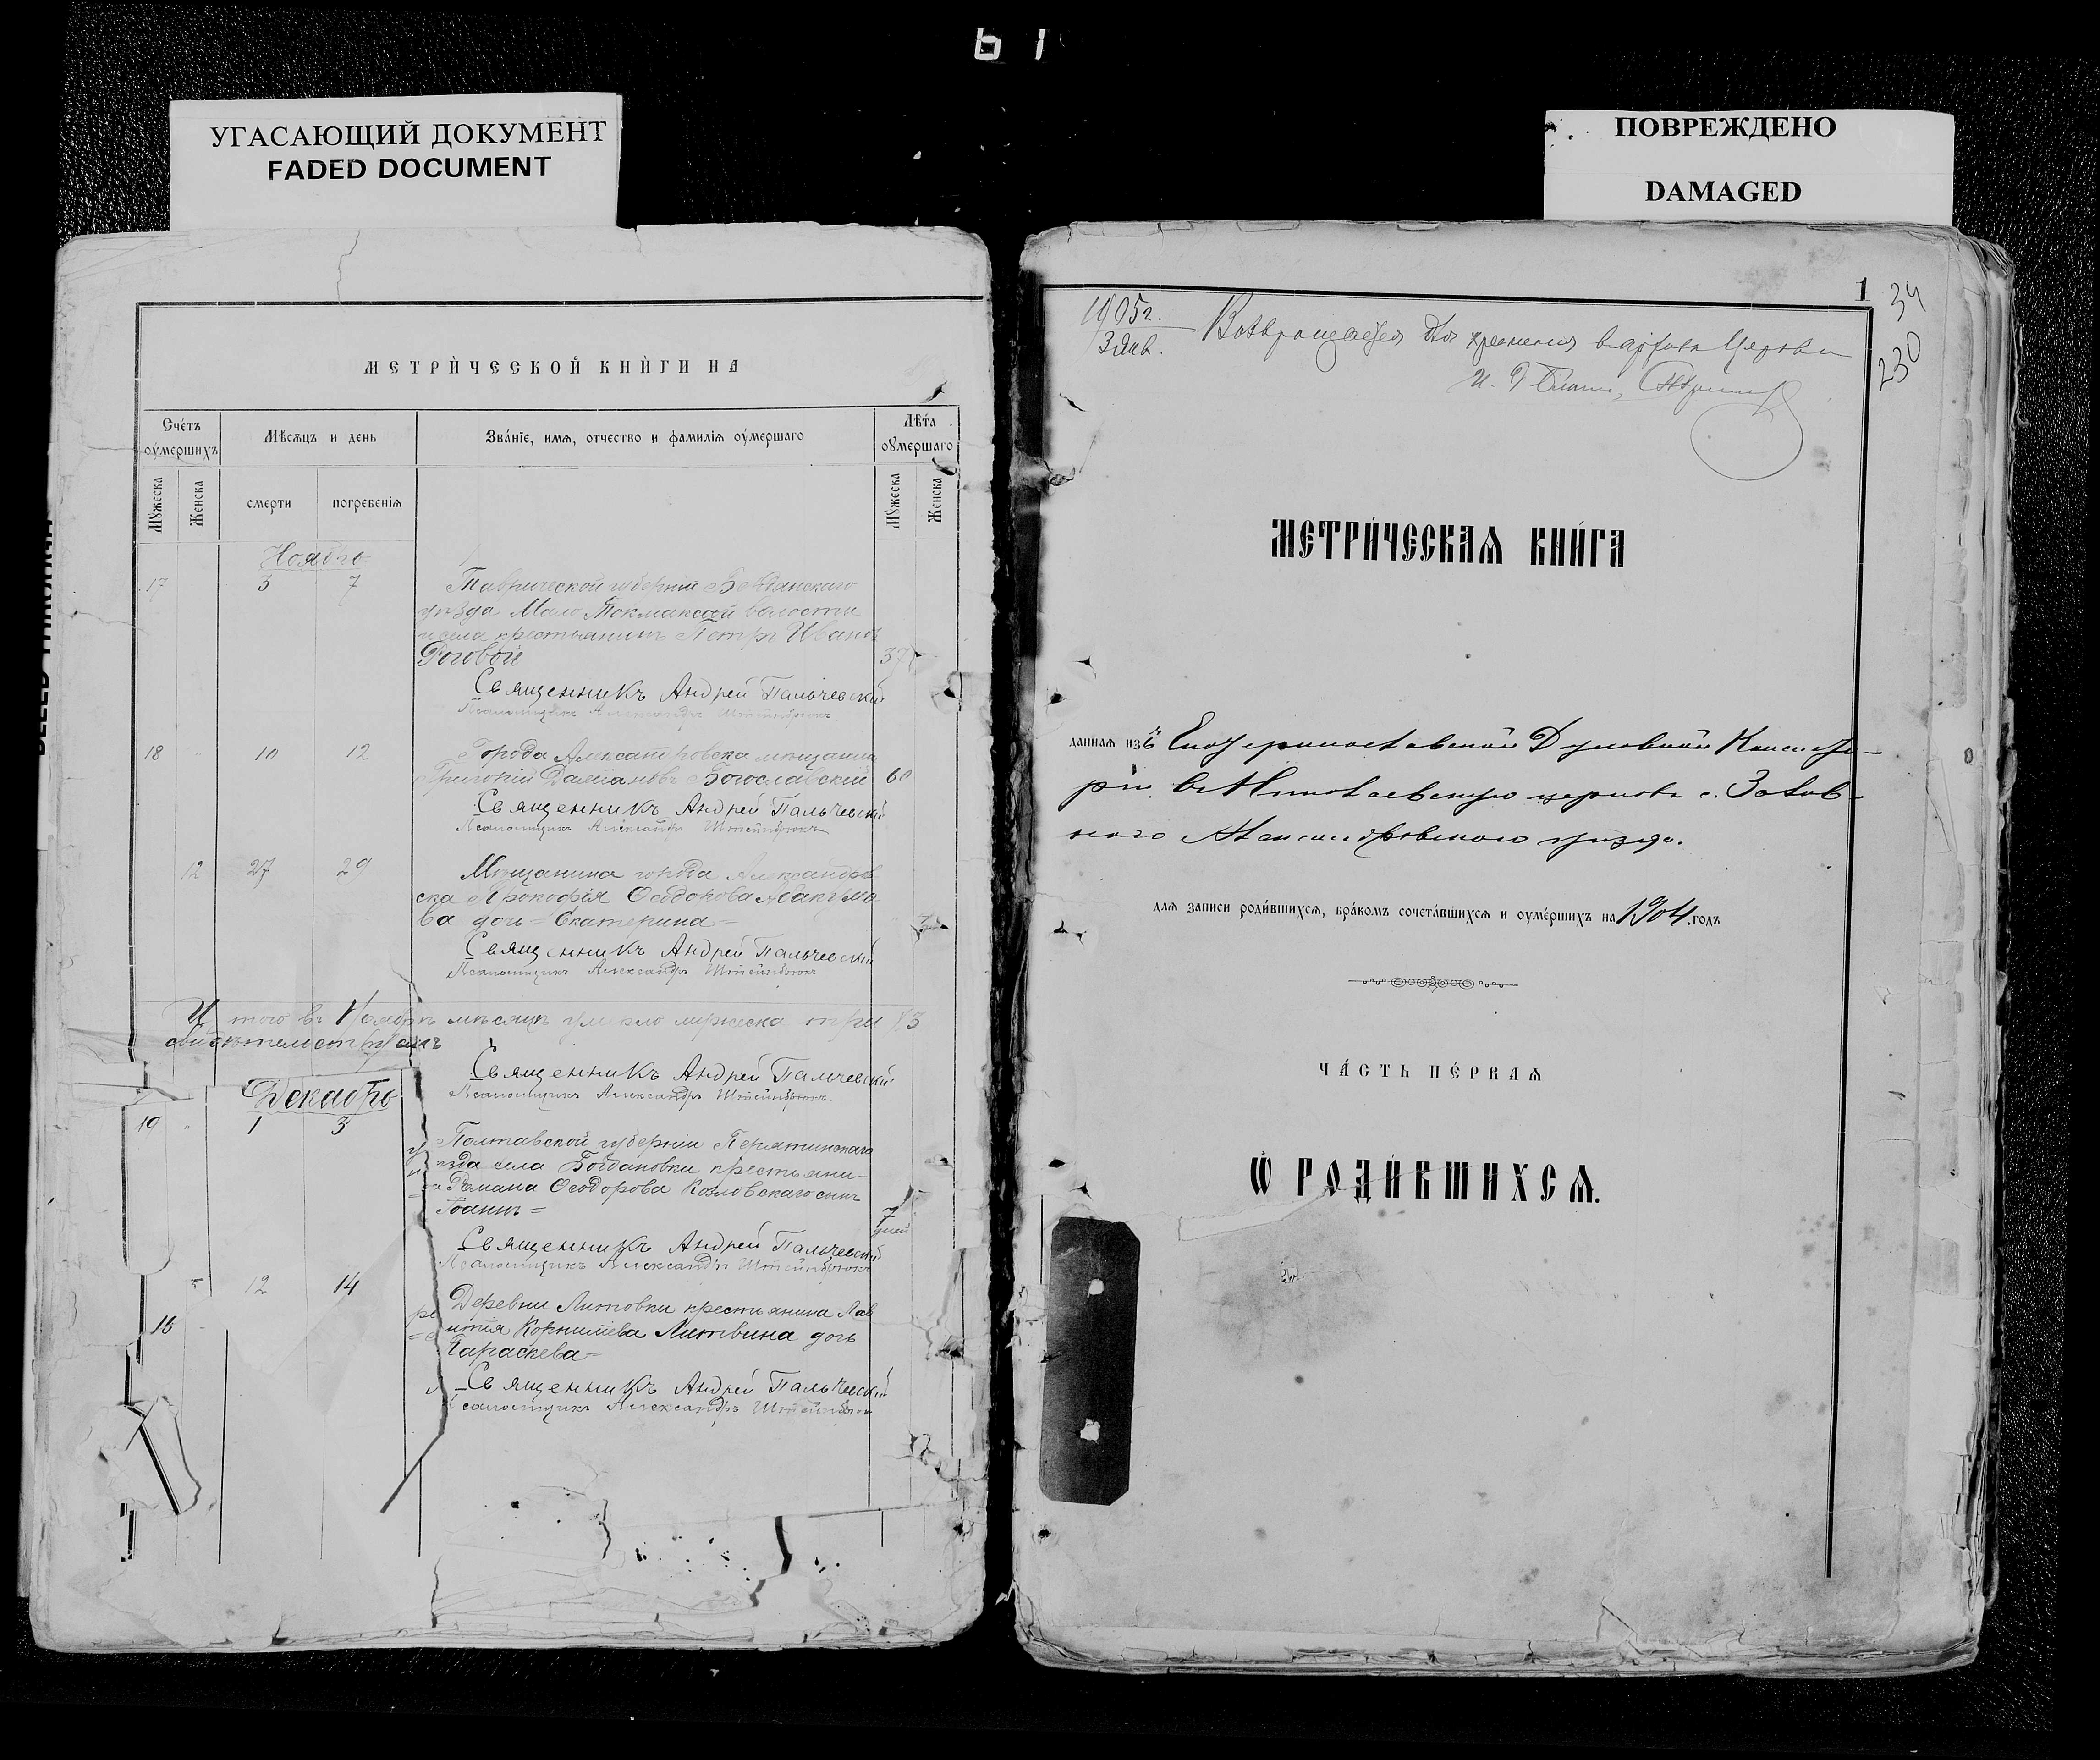 61
УГАСАЮЩИЙ ДОКУМЕНТ
FADED DOCUMENT
ПОВРЕЖДЕНО
DAMAGED
МЕТРИ́ЧЕСКОЙ КНИ́ГИ НА
Сче́тъ оу́мершихъ
Мѣсѧцъ и день
Зва́нїе, имѧ, отчество и фамилїѧ оу́мершаго
Лѣ́та оу́мершаго
Мꙋжеска
Женска
смерти
погребенїѧ
Мꙋжеска
Женска
Ноябрь
17 3 7 Таврической губерніи Бердянскаго
уѣзда Мало Токмакской волости
и села крестьянинъ Петръ Ивановъ
Роговой 37
Священникъ Андрей Пальчевскій
Псаломщикъ Александръ Штейнбрюкъ
18 " 10 12 Города Александровска мѣщанинъ
Григорій Даміановъ Богославскій 60
Священникъ Андрей Пальчевскій
Псаломщикъ Александръ Штейнбрюкъ
12 27 29 Мѣщанина города Александров
ска Прокофія Ѳеодорова Абакумо
ва дочь = Екатерина =
Священникъ Андрей Пальчевскій
Псаломщикъ Александръ Штейнбрюкъ
Итого въ Ноябрѣ мѣсяцѣ умерло мужеска три
Священникъ Андрей Пальчевскій
Псаломщикъ Александръ Штейнбрюкъ
Декабрь
19 " 1 3 Полтавской губерніи Пирятинскаго
уѣзда села Богдановки крестьяни-
на Романа Ѳеодорова Козловскаго сынъ
Іоаннъ = 7 дней
Священникъ Андрей Пальчевскій
Псаломщикъ Александръ Штейнбрюкъ
12 14 Деревни Литовки крестьянина Лав
рентія Корнилѣва Литвина дочь
Параскева =
16
Священникъ Андрей Пальчевскій
Псаломщикъ Александръ Штейнбрюкъ
1
34
230
1905г.
3 Янв.
Возвращается для храненія въ архивъ Церкви
МЕТРИ́ЧЕСКАѦ КНИ́ГА
даннаѧ изъ Екатеринославской Духовной Консисто-
ріи въ Николаевскую церковь с.
Александровскаго уѣзда.
длѧ записи роди́вшихсѧ, бра́комъ сочета́вшихсѧ и оуме́ршихъ на 1904 годъ
ЧА́СТЬ ПЕ́РВАѦ
Ѡ҆ РОДИ́ВШИХСѦ.